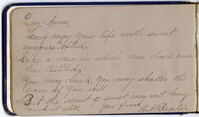 Dear Anna
Long may your life with sweet
memories be filled,
Like a vase in which rose have once
been distilled,
You may break, You may shatter the
vase if you will
But the scent of sweet roses will hang
round it still.
Your friend